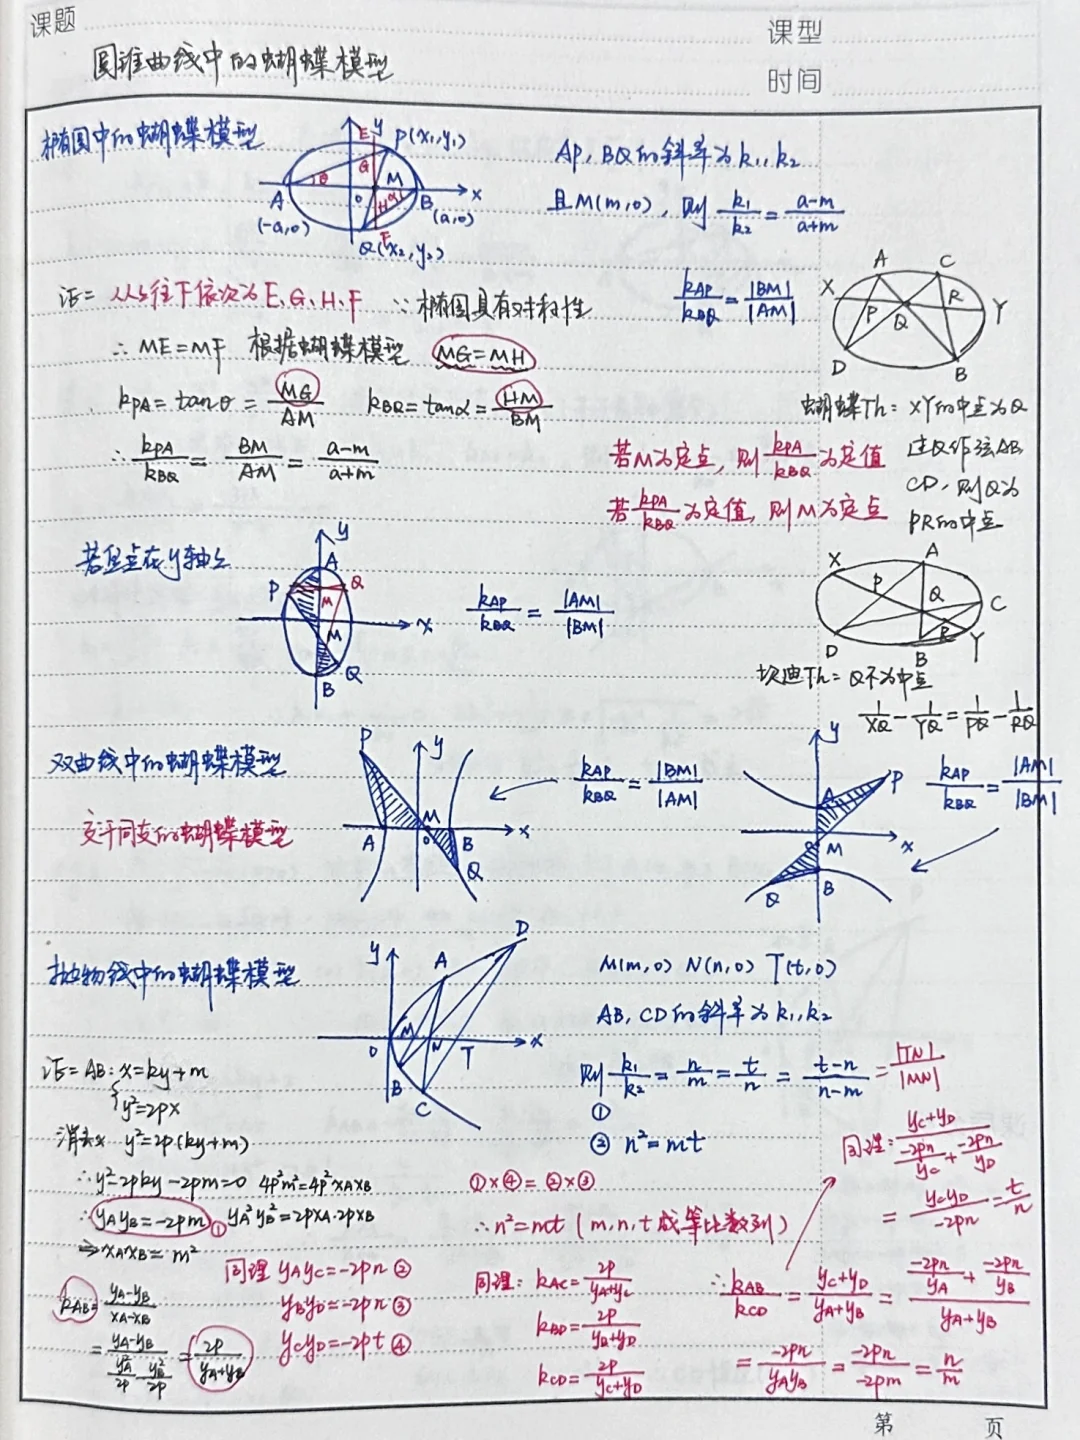 课题
课型
圆锥曲线中的蝴蝶模型
时间
椭圆中的蝴蝶模型
y
E
P(x₁,y₁)
G
θ
M
A
O
H
α
B
x
(-a,0)
(a,0)
F
Q(x₂,y₂)
AP, BQ的斜率为k₁,k₂
且M(m,0), 则 k₁/k₂ = (a-m)/(a+m)
证= 从上往下依次为E、G、H、F ∵椭圆具有对称性
k_AP/k_BQ = |BM|/|AM|
A C
X R Y
P Q
D B
∴ ME=MF 根据蝴蝶模型 MG=MH
k_PA=tanθ= MG/AM k_BQ=tanα= HM/BM
∴ k_PA/k_BQ = BM/AM = (a-m)/(a+m)
蝴蝶Th: XY的中点为Q
过Q作弦AB
CD, 则Q为
PR的中点
若M为定点, 则 k_PA/k_BQ 为定值
若 k_PA/k_BQ 为定值, 则M为定点
若焦点在y轴上
y
A
P Q
M
x
M
Q
B
k_AP/k_BQ = |AM|/|BM|
X A
P
Q
C
R
D B Y
坎迪Th= Q不为中点
1/XQ - 1/YQ = 1/PQ - 1/RQ
双曲线中的蝴蝶模型
交于同支的蝴蝶模型
P y
M
A O B x
Q
k_AP/k_BQ = |BM|/|AM|
y
P
A
O
x
M
B
Q
k_AP/k_BQ = |AM|/|BM|
抛物线中的蝴蝶模型
y
D
A
M
O N T x
B
C
M(m,0) N(n,0) T(t,0)
AB, CD的斜率为k₁,k₂
则 k₁/k₂ = n/m = t/n = (t-n)/(n-m) = |TN|/|MN|
①
② n²=mt
证= AB: x=ky+m
y²=2px
消去x y²=2p(ky+m)
∴y²-2pky-2pm=0 4p²m²=4p²x_Ax_B
∴ y_Ay_B=-2pm ① y_A²y_B²=2px_A·2px_B
⇒x_A·x_B=m²
同理 y_Ay_C=-2pn ②
y_By_D=-2pn ③
y_Cy_D=-2pt ④
k_AB= (y_A-y_B)/(x_A-x_B)
= (y_A-y_B)/(y_A²/2p - y_B²/2p) = 2p/(y_A+y_B)
①×④=②×③
∴n²=mt (m,n,t成等比数列)
同理: k_AC= 2p/(y_A+y_C)
k_BD= 2p/(y_B+y_D)
k_CD= 2p/(y_C+y_D)
∴ k_AB/k_CD = (y_C+y_D)/(y_A+y_B) = (-2pn/y_A + -2pn/y_B)/(y_A+y_B)
= -2pn/(y_Ay_B) = -2pn/-2pm = n/m
同理: (y_C+y_D)/(-2pn/y_C + -2pn/y_D)
= y_Cy_D/-2pn = t/n
第 页